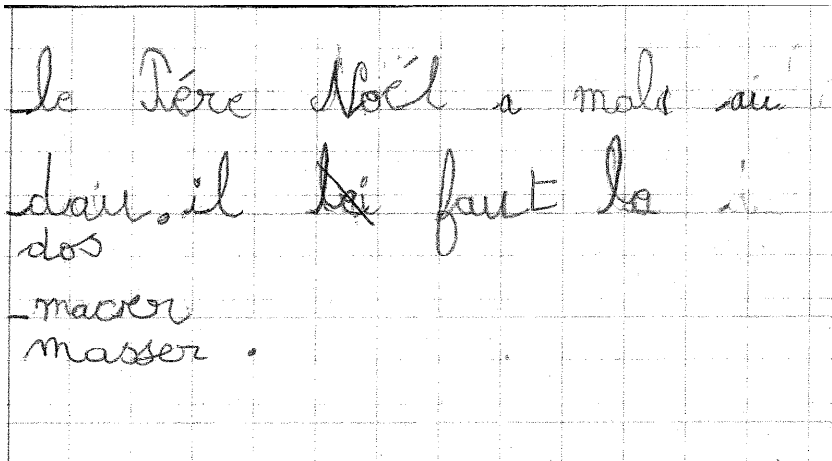 le Pére Noël a mals au
dau. il faut le
dos
macer
masser.